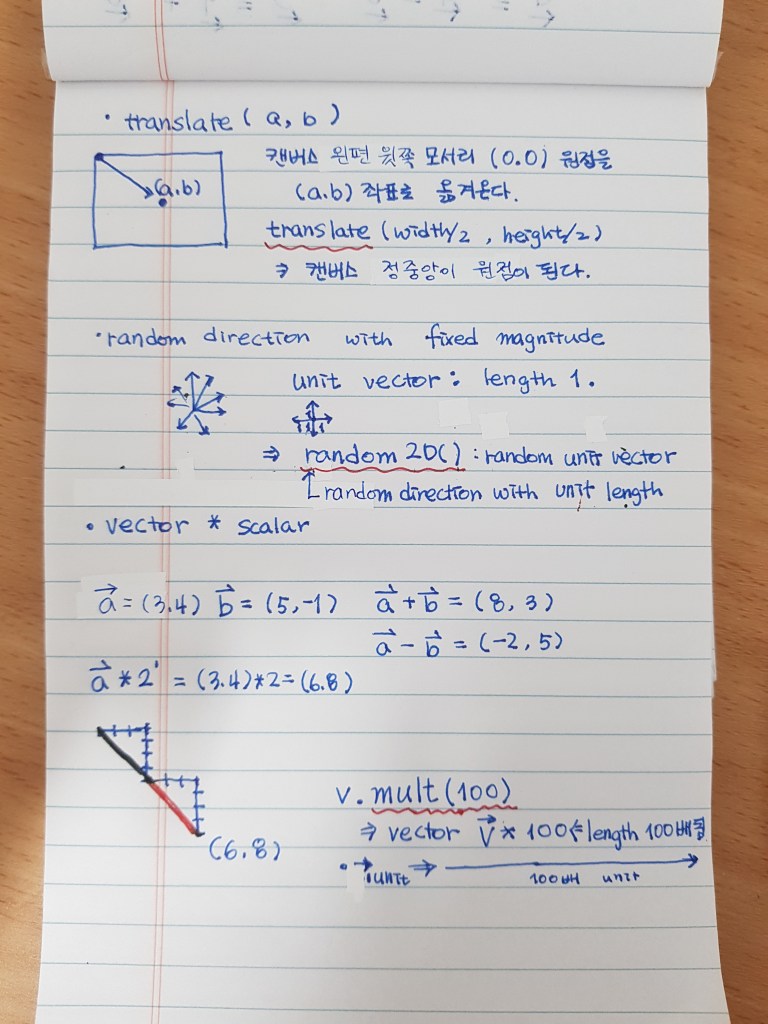 • translate ( a, b )
캔버스 왼편 윗쪽 모서리 (0.0) 원점을
(a.b)
(a.b) 좌표로 옮겨온다.
translate (width/2 , height/2)
⇒ 캔버스 정중앙이 원점이 된다.
• random direction with fixed magnitude
unit vector : length 1.
1 1
⇒ random 2D() : random unit vector
random direction with unit length
• vector * scalar
a⃗ = (3.4) b⃗ = (5,-1) a⃗ + b⃗ = (8, 3)
a⃗ - b⃗ = (-2, 5)
a⃗ * 2 = (3.4)*2 = (6.8)
v. mult (100)
⇒ vector V⃗ * 100 ⇐ length 100배됨
(6.8)
• → 1unit ⇒ 100배 unit